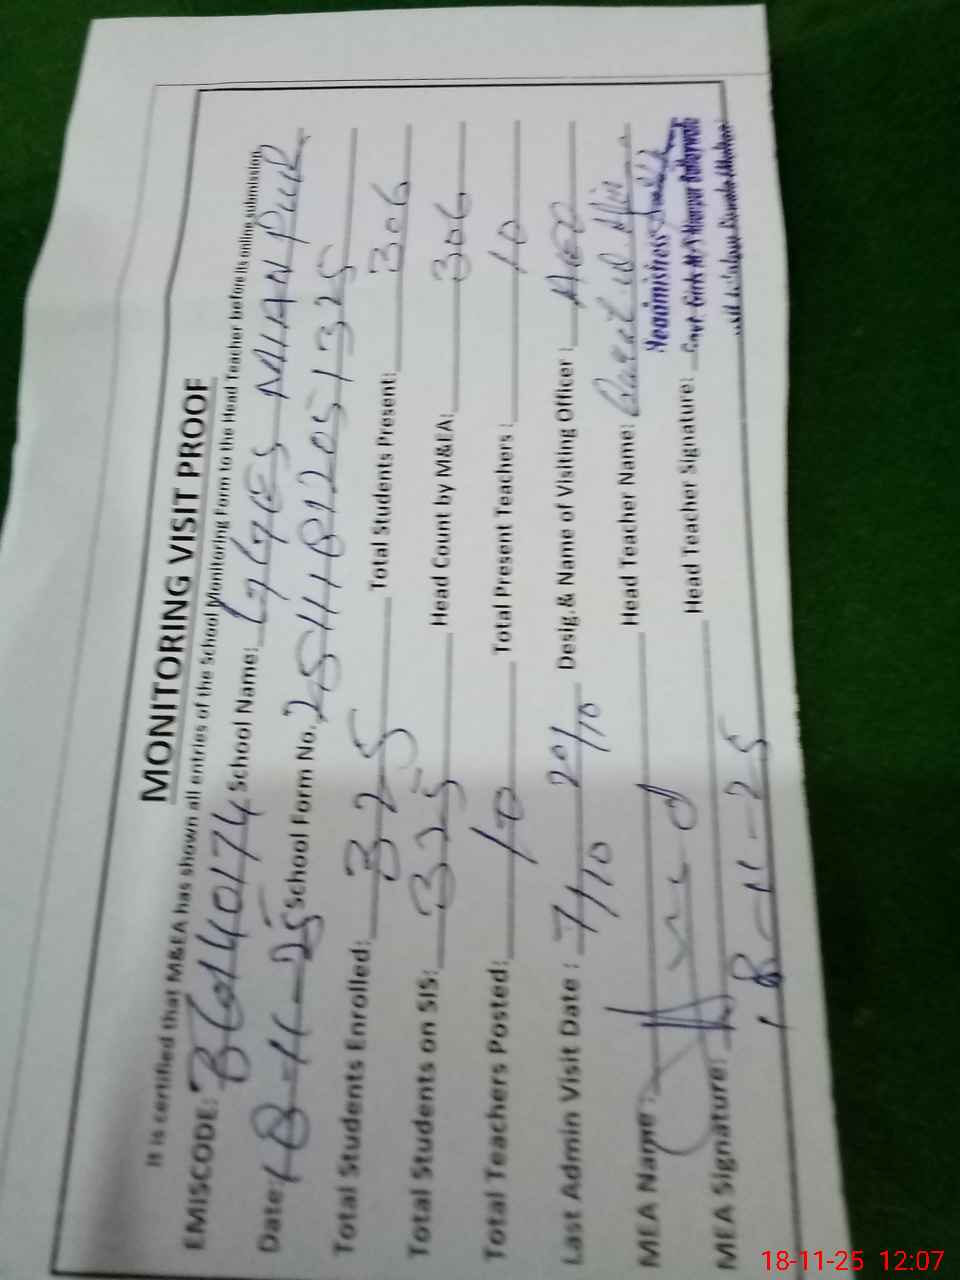 MONITORING VISIT PROOF
It is certified that M&EA has shown all entries of the School Monitoring Form to the Head Teacher before its online submission
EMISCODE: 36140174 School Name: GGES MIANPUR
Date: 18-11-25 School Form No. 25111812051325
Total Students Enrolled: 325 Total Students Present: 306
Total Students on SIS: 325 Head Count by M&EA: 306
Total Teachers Posted: 10 Total Present Teachers: 10
Last Admin Visit Date: 7/10 Desig.& Name of Visiting Officer: AEO
MEA Name: Head Teacher Name:
Headmistress
MEA Signature: Head Teacher Signature:
Govt. Girls
18-11-25
18-11-25 12:07